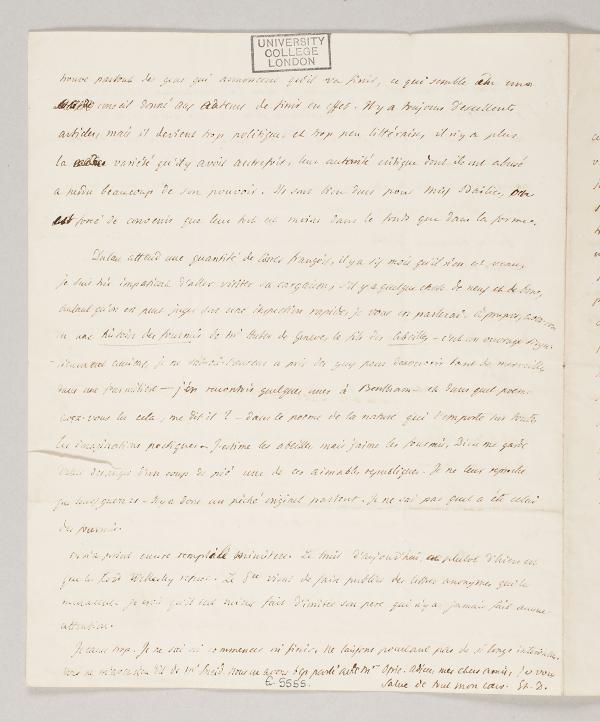 UNIVERSITY
COLLEGE
LONDON
trouve partout des gens qui annoncent qu'il va finir, ce qui semble
conseil donné aux auteurs de finir en effet. Il y a toujours d'excellents
articles, mais il devient trop politique, et trop peu littéraire, il n'y a plus
la variété qu'il y avoit autrefois, leur autorité critique dont ils ont abusé
a perdu beaucoup de son pouvoir. Ils sont bien durs pour Miss Baillie,
est forcé de convenir que leur tort est moins dans le fonds que dans la forme.
Dulau attend une quantité de livres françois, il y a six mois qu'il n'en est venu,
je suis très impatient d'aller visiter sa cargaison, s'il y a quelque chose de neuf et de bon,
autant qu'on en peut juger sur une inspection rapide, je vous en parlerai. A propos,
une histoire des fourmis de Mr Huber de Geneve, le fils des abeilles - c'est un ouvrage
curieux, je ne sais où l'auteur a pris des yeux pour
dans une fourmiliere - j'en racontois quelques unes à Bentham - et dans quel poeme
avez-vous lu cela, me dit il ? - dans le poeme de la nature qui l'emporte sur toutes
les imaginations poetiques. J'estime les abeilles mais j'aime les fourmis, Dieu me garde
d'un coup de pié une de ces aimables republiques. Je ne leur reproche
que leurs guerres - Il y a donc un péché originel partout. Je ne sai pas quel a été celui
des fourmis.
On n'a point encore remplacé le ministere. Le bruit d'aujourdhui, ou plutot d'hier est
que le Lord Wellesley refuse. Le vient de faire publier des lettres anonymes qui le
menacent. Je crois qu'il eut mieux fait d'imiter son pere qui n'y a jamais fait aucune
attention.
Je cause trop. Je ne sai ni commencer ni finir. Ne laissons pourtant pas de si longs intervalles.
Vous ne m'avez rien dit de Mr nous en avons bcp parlé avec Mrs Opie. adieu, mes chers amis, je vous
salue de tout mon cœur. Et. D.
E. 5555.